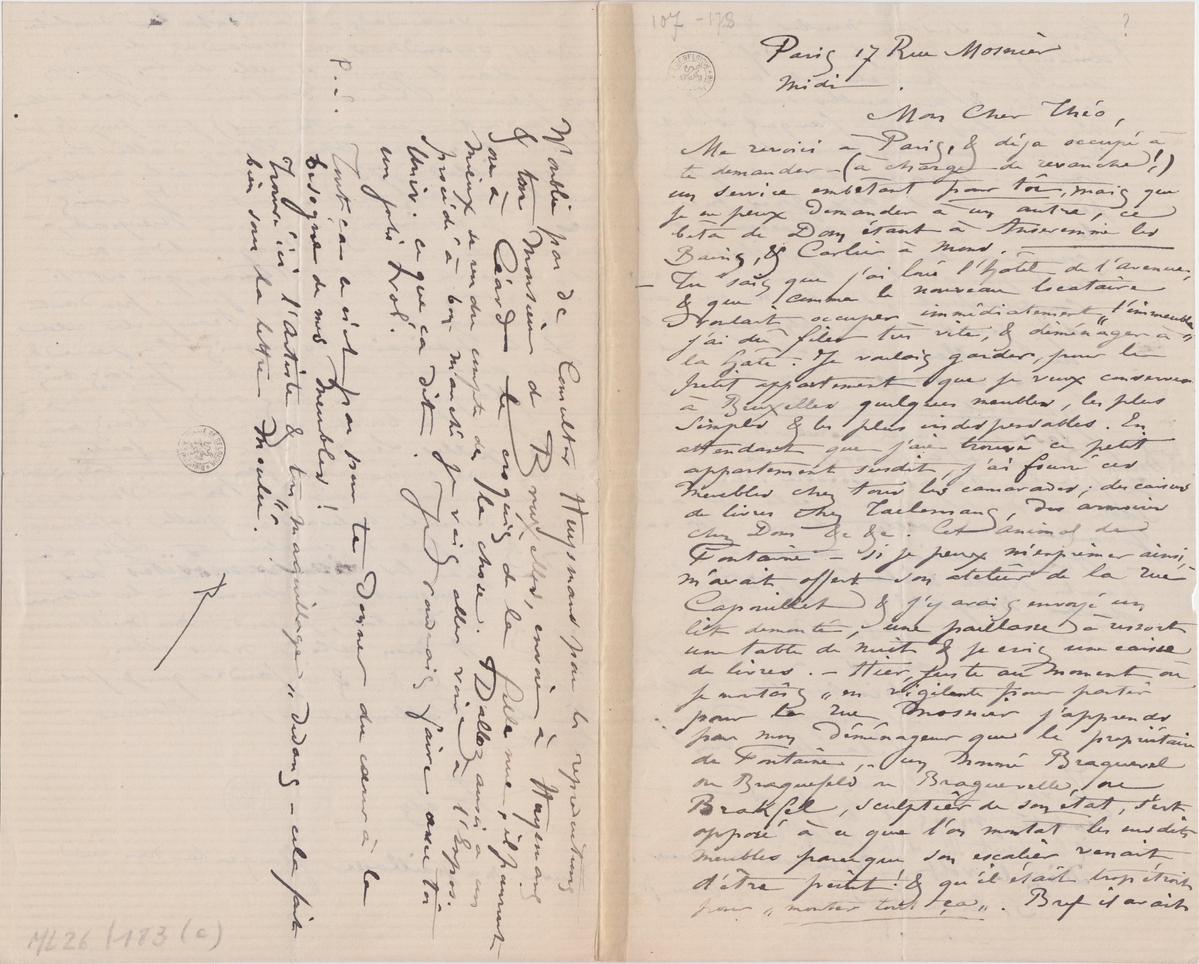 107 - 178
?
Paris 17 Rue Mosnier
Midi.
Mon Cher Théo,
Me revoici à Paris, & déja occupé à
te demander - (à charge de revanche!)
un service embêtant pour toi, mais que
je ne peux demander à un autre, ce
béta de Dom étant à Anseremme les
Bains, & Carlier à Mons.
Tu sais que j'ai loué l'hôtel de l'Avenue,
& que comme le nouveau locataire
voulait occuper immédiatement l'immeuble
j'ai dû filer très vite, & déménager "à
la Gâte". Je voulais garder, pour le
petit appartement que je veux conserver
à Bruxelles quelques meubles, les plus
simples & les plus indispensables. En
attendant que j'aie trouvé ce petit
appartement susdit, j'ai fourré ces
meubles chez tous les camarades; des caisses
de livres chez Taelemans, des armoires
chez Dom &c &c. Cet animal de
Fontaine - si je peux m'exprimer ainsi,
m'avait offert son atelier de la rue
Capouillet & j'y avais envoyé un
lit démonté, une paillasse à ressort
une table de nuit & je crois une caisse
de livres. - Hier, juste au moment où
je montais "en vigilante" pour partir
pour la rue Mosnier j'apprends
par mon déménageur que le propriétaire
de Fontaine, - un nommé Braquevel
ou Braquefeld ou Braquevelle, ou
Brakfel, sculptier de son état, s'est
opposé à ce que l'on montat les susdits
meubles parce que son escalier venait
d'être peint! & qu'il était trop étroit
pour "monter tout ça". Bref il avait
N'oublie pas de Consulter Huysmans pour les reproductions
& ton Monsieur de Bruxelles, envoie à Huysmans
ou à Céard le croquis de la fille nue, il pourront
mieux se rendre compte de la chose. Dalloz aussi a un
procédé à bon marché je vais aller voir à l'Expos.
Univ. ce que ça dit. Je voudrais faire avec toi
un joli vol.
P.S.
Tout ça n'est pas pour te donner du cœur à la
besogne de mes meubles!
Trouvé ici l'Artiste & ton maquillage "Dudans" - cela fait
bien sous la lettre Moulée".
R
ML 26 / 183 (c)